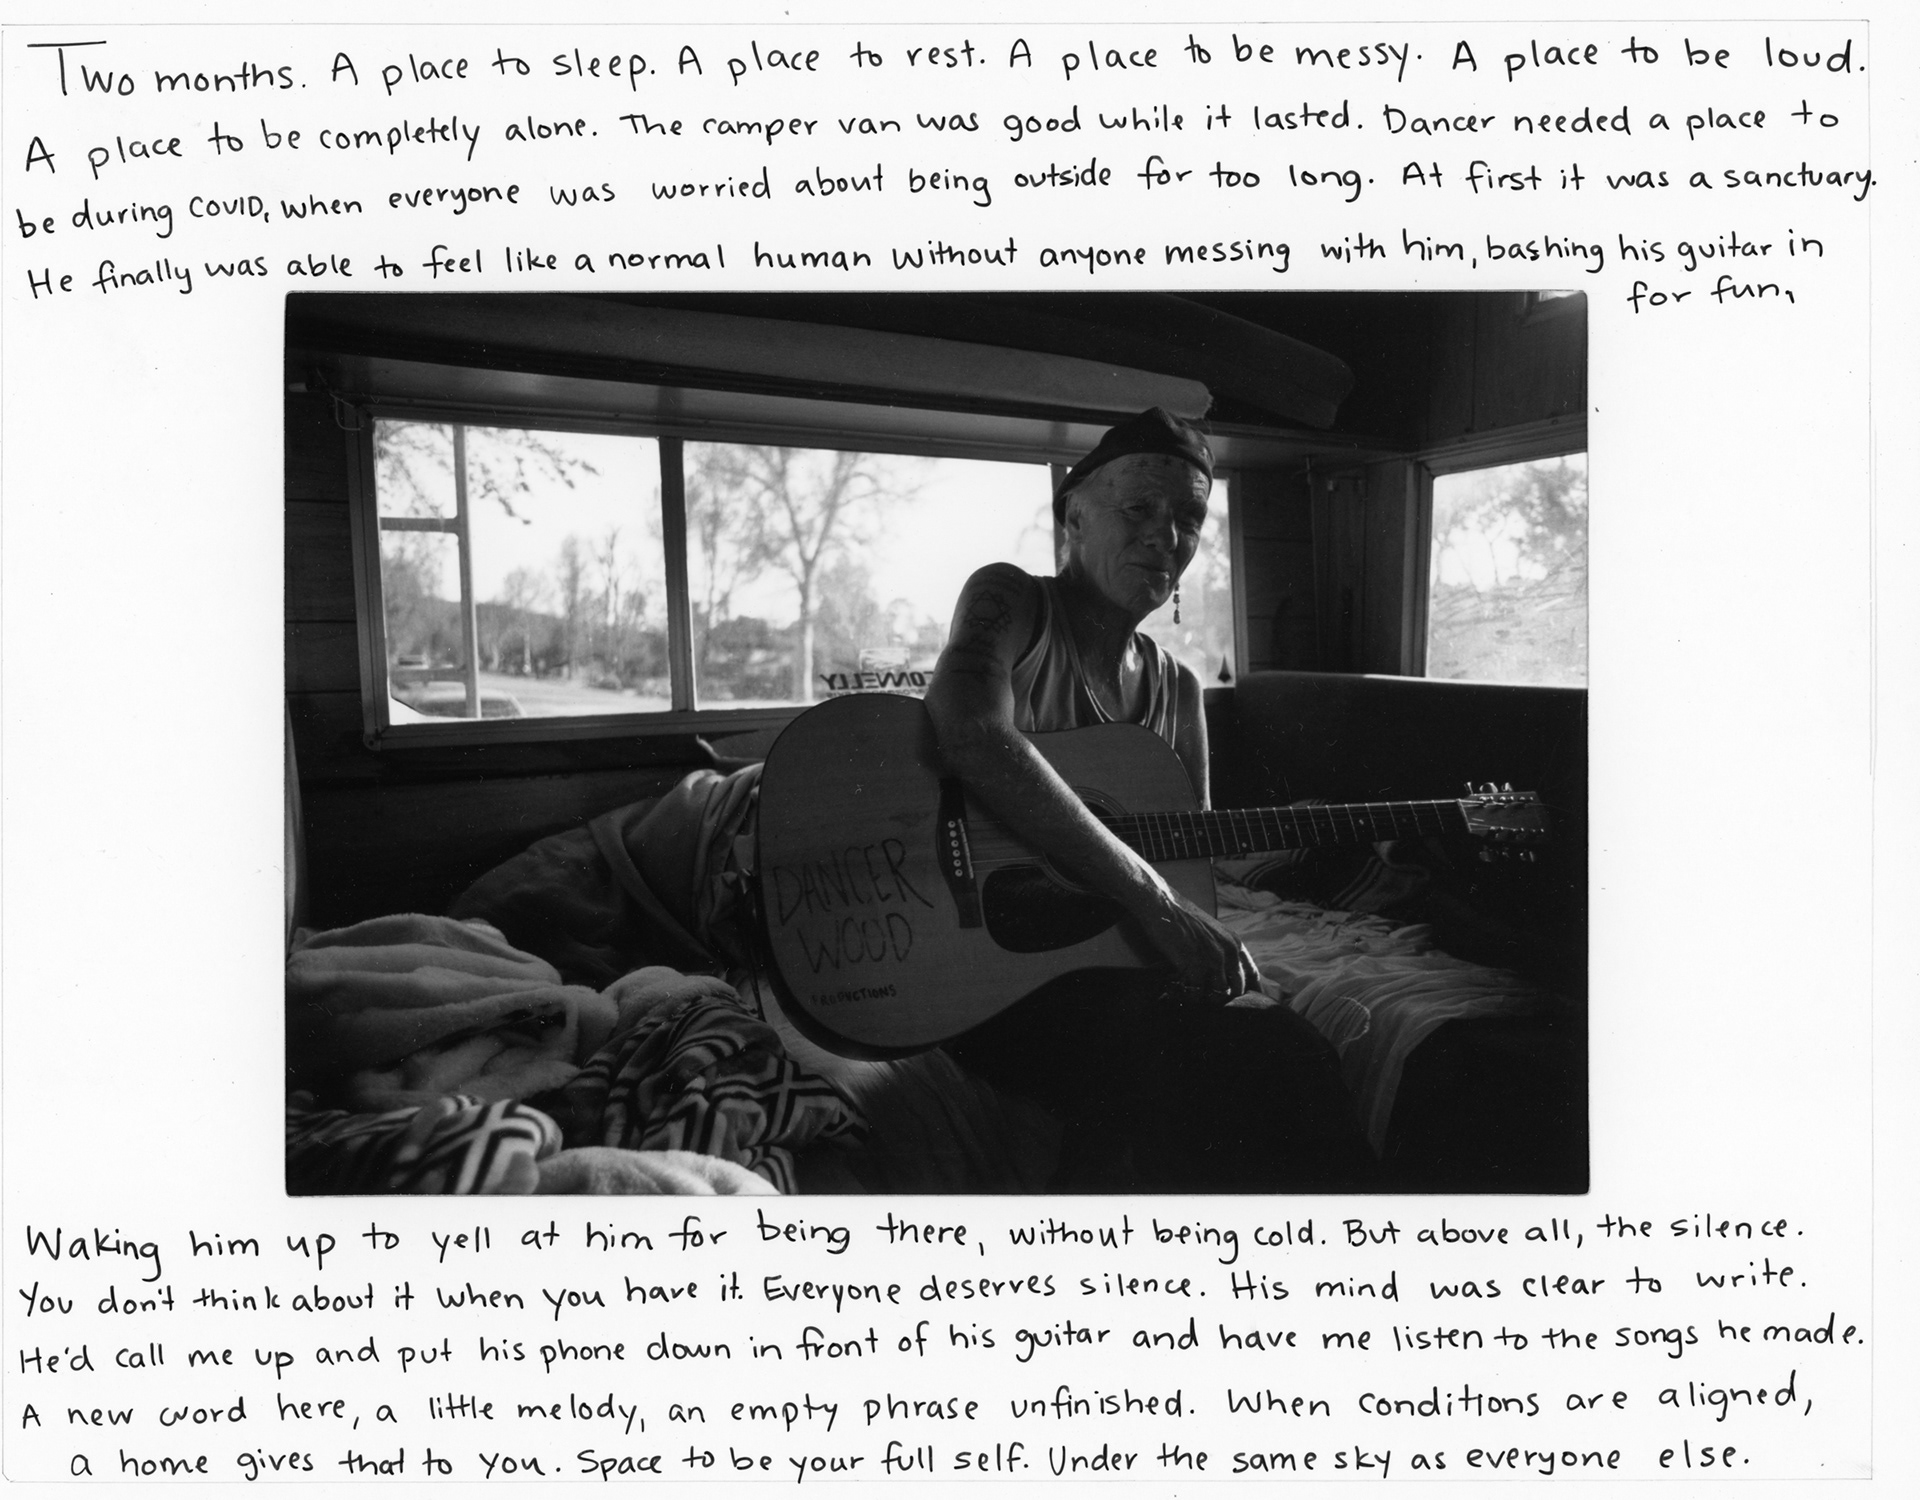 Two months. A place to sleep. A place to rest. A place to be messy. A place to be loud.
A place to be completely alone. The camper van was good while it lasted. Dancer needed a place to
be during COVID, when everyone was worried about being outside for too long. At first it was a sanctuary.
He finally was able to feel like a normal human without anyone messing with him, bashing his guitar in
for fun,
CONNELLY
DANCER
WOOD
PRODUCTIONS
Waking him up to yell at him for being there, without being cold. But above all, the silence.
You don't think about it when you have it. Everyone deserves silence. His mind was clear to write.
He'd call me up and put his phone down in front of his guitar and have me listen to the songs he made.
A new word here, a little melody, an empty phrase unfinished. When conditions are aligned,
a home gives that to you. Space to be your full self. Under the same sky as everyone else.